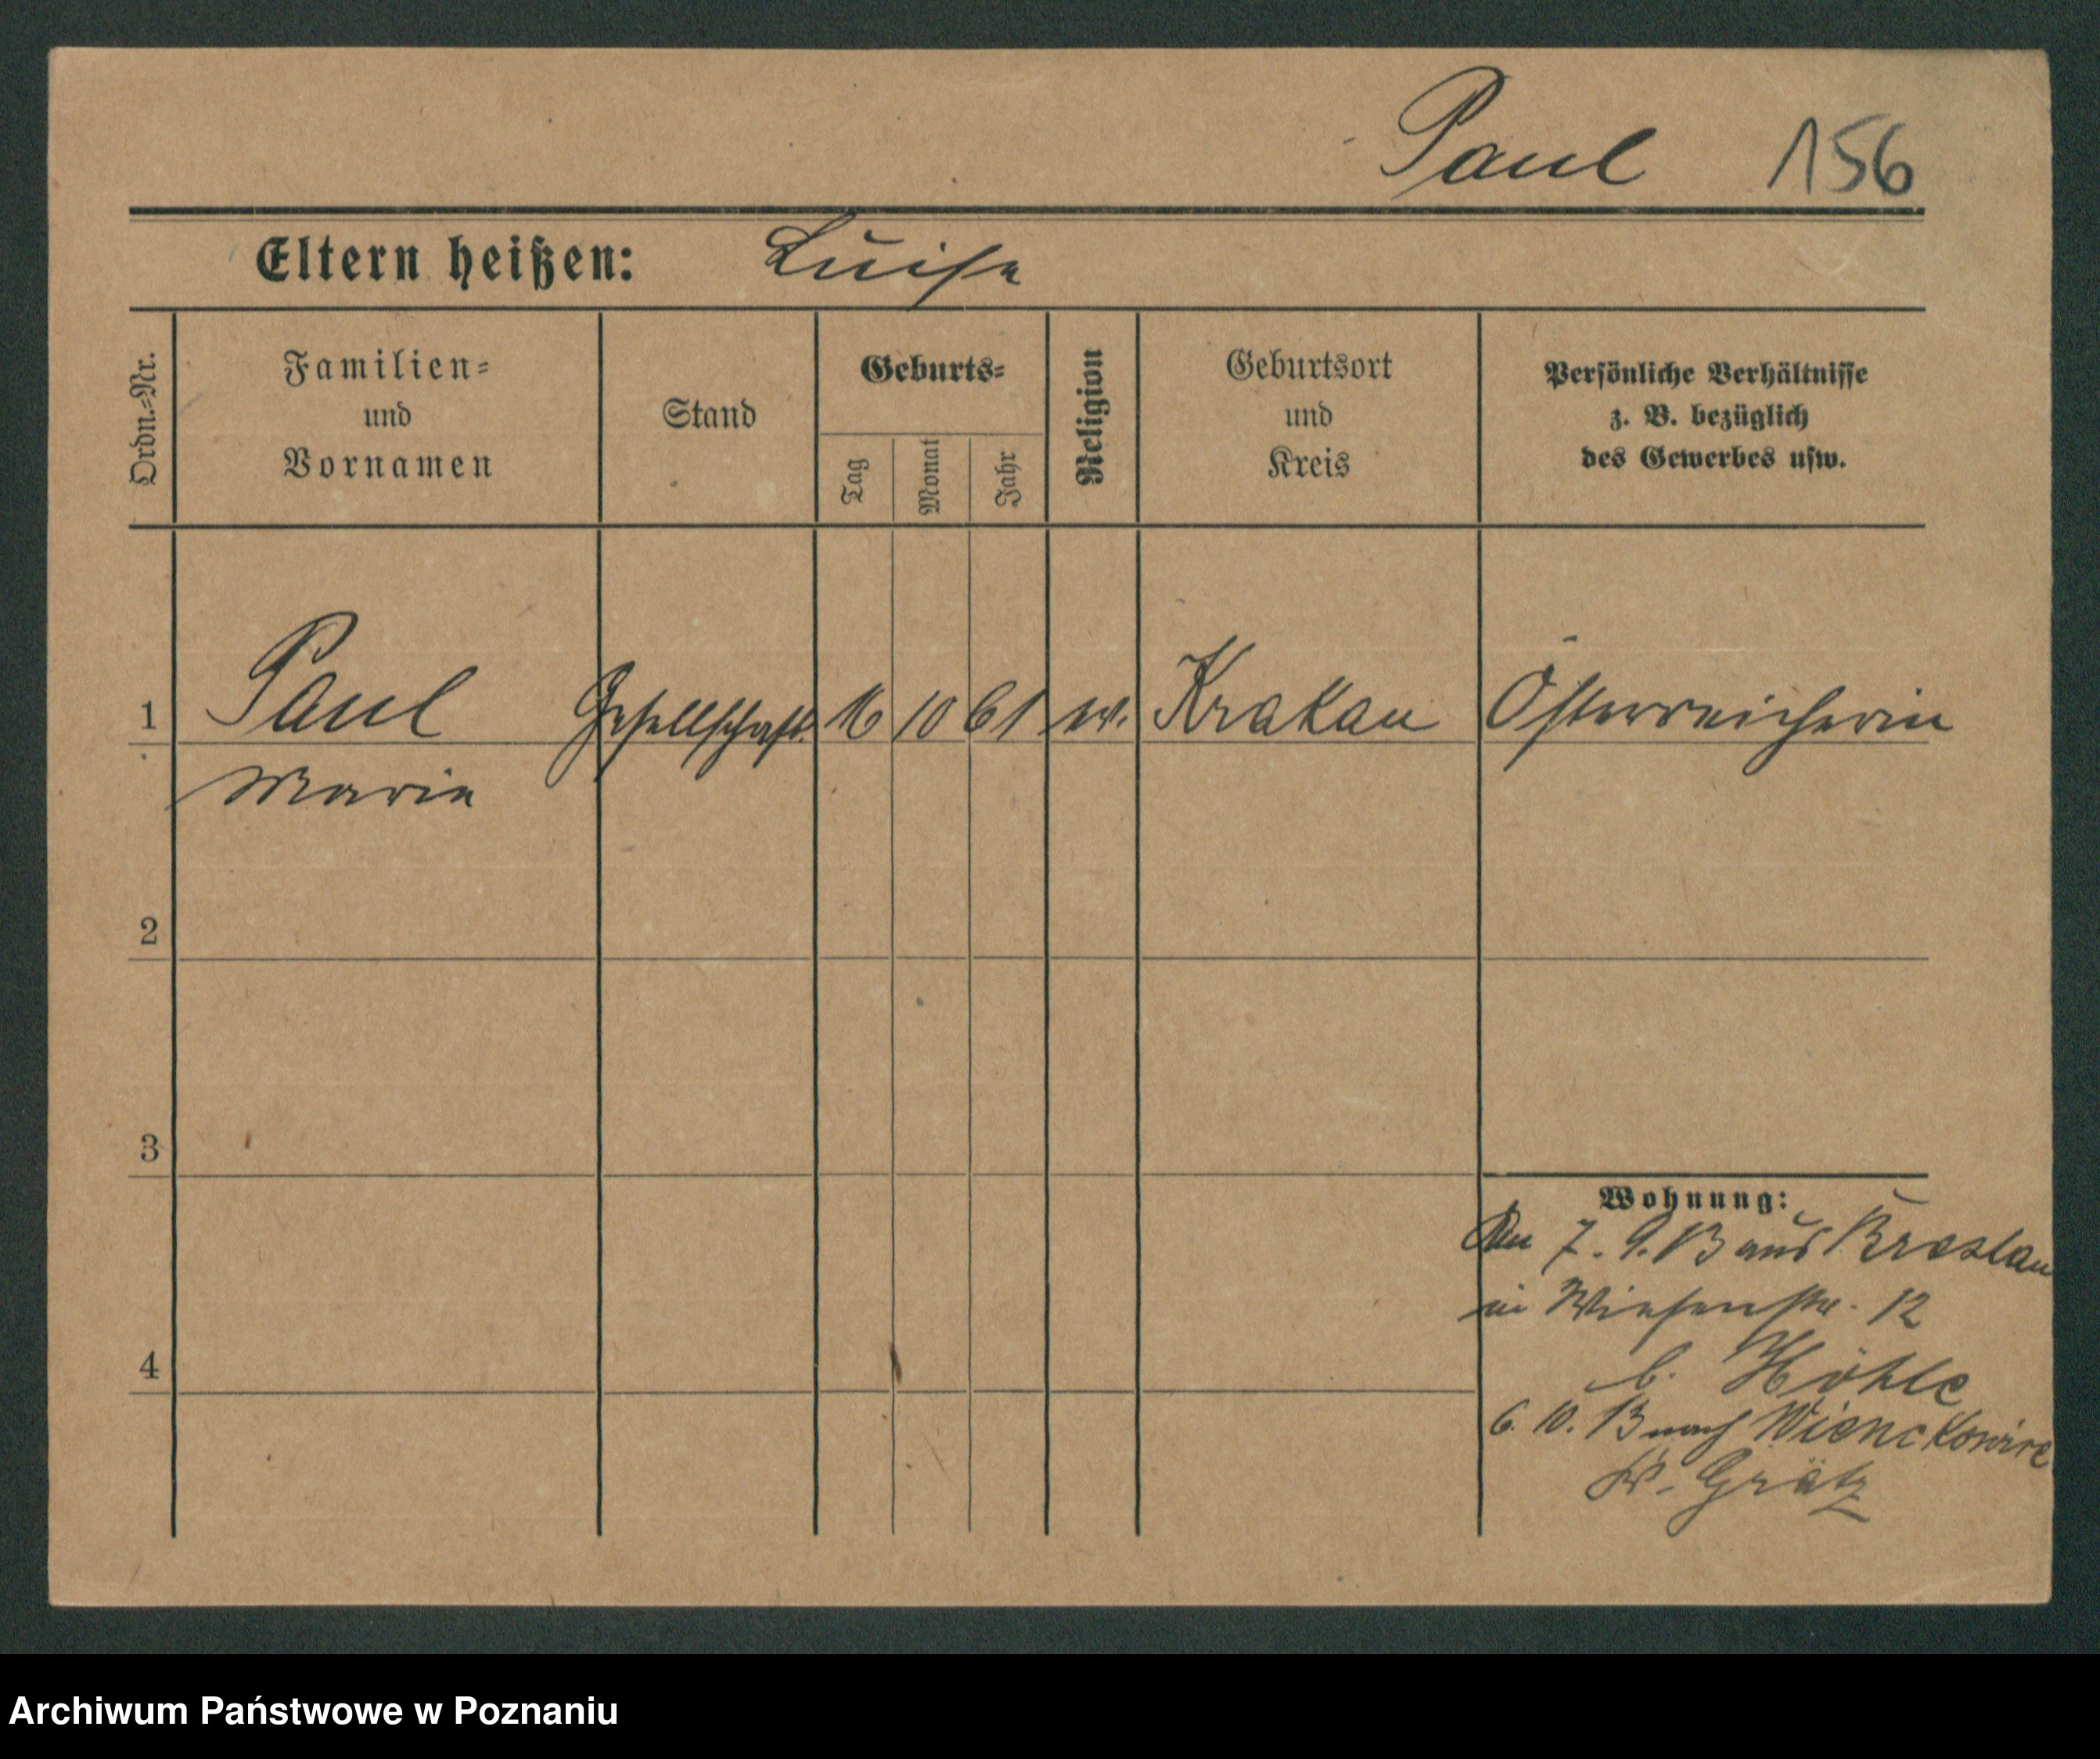 Paul 156
Eltern heißen: Luise
Ordn.=Nr.
Familien=
und
Vornamen
Stand
Geburts=
Tag
Monat
Jahr
Religion
Geburtsort
und
Kreis
Persönliche Verhältnisse
z. B. bezüglich
des Gewerbes usw.
1 Paul Gesellschaft. 16 10 61 ev. Krakau Österreicherin
Marie
2
3
4
Wohnung:
7. 9. 13 aus Breslau
in Wiesenstr. 12
b. Höhle
6. 10. 13 nach
Kr. Grätz
Archiwum Państwowe w Poznaniu